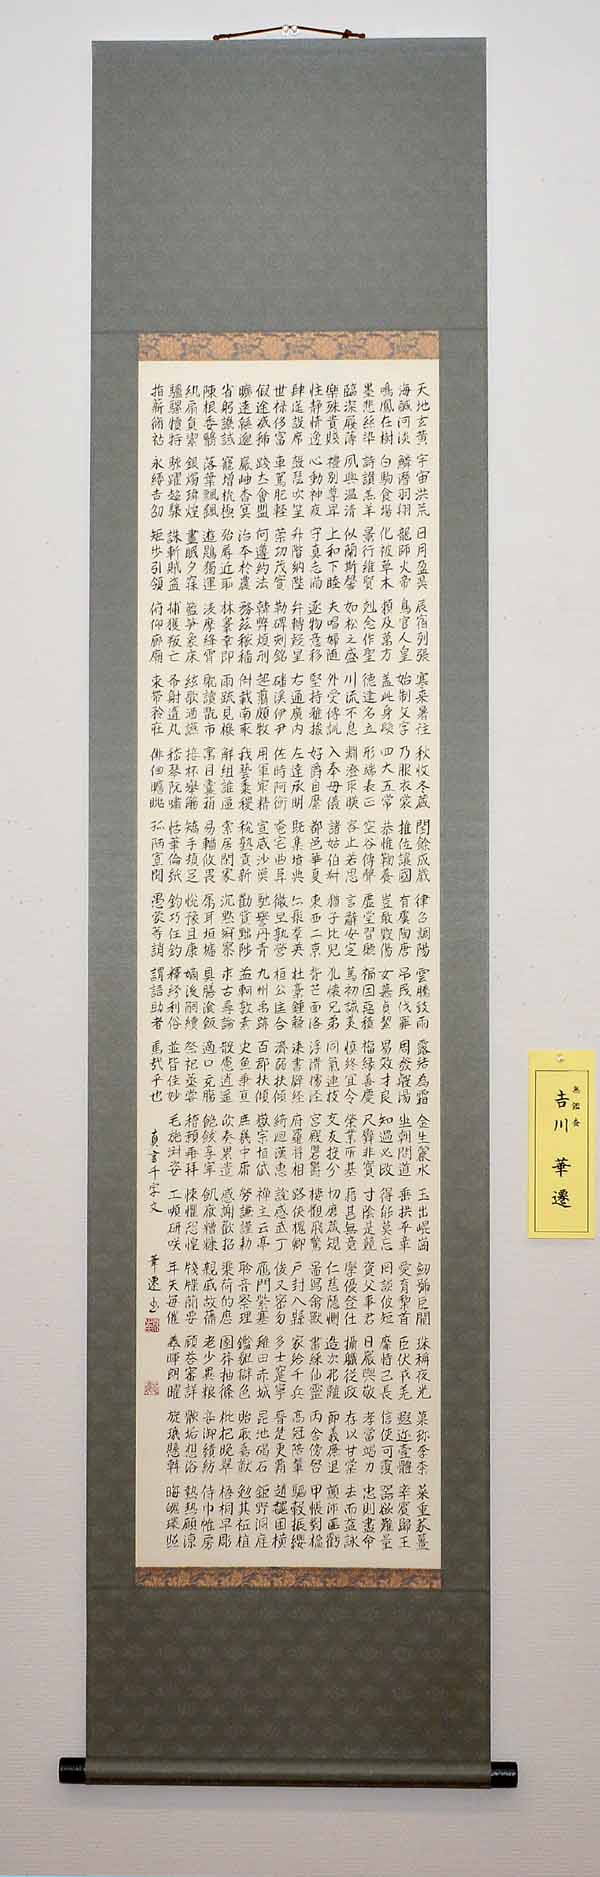 天地玄黄宇宙洪荒日月盈昃辰宿列張寒来暑往秋收冬蔵閏餘成歳律呂調陽雲騰致雨露結為霜金生麗水玉出崐崗劒號巨闕珠稱夜光菓珎李柰菜重芥薑
海鹹河淡鱗潛羽翔龍師火帝鳥官人皇始制文字乃服衣裳推位讓國有虞陶唐弔民伐罪周發殷湯坐朝問道垂拱平章愛育黎首臣伏戎羌遐迩壹體率賓歸王
鳴鳳在樹白駒食場化被草木頼及萬方盖此身髮四大五常恭惟鞠養豈敢毀傷女慕貞潔男效才良知過必改得能莫忘罔談彼短靡恃己長信使可覆器欲難量
墨悲絲染詩讃羔羊景行維賢剋念作聖德建名立形端表正空谷傳聲虚堂習聽禍因惡積福縁善慶尺璧非寶寸陰是競資父事君曰嚴與敬孝當竭力忠則盡命
臨深履薄夙興温清似蘭斯馨如松之盛川流不息淵澄取暎容止若思言辭安定篤初誠美慎終宜令榮業所基藉甚無竟學優登仕攝職從政存以甘棠去而益詠
樂殊貴賤禮別尊卑上和下睦夫唱婦随外受傅訓入奉母儀諸姑伯叔猶子比兒孔懷兄弟同氣連枝交友投分切磨箴規仁慈隱惻造次弗離節義廉退顛沛匪虧
性静情逸心動神疲守真志滿逐物意移堅持雅操好爵自縻都邑華夏東西二京背芒面洛浮渭據涇宮殿磐欝樓觀飛驚圖寫禽獸畫綵仙靈丙舎傍啓甲帳對楹
肆筵設席鼓瑟吹笙升階納陛弁轉疑星右通廣内左達承明既集墳典亦聚羣英杜稾鍾隸漆書壁經府羅將相路俠槐卿戸封八縣家給千兵高冠陪輦驅轂振纓
世禄侈富車駕肥輕策功茂實勒碑刻銘磻溪伊尹佐時阿衡奄宅曲阜微旦孰營桓公匡合濟弱扶傾綺迴漢惠説感武丁俊乂密勿多士寔寧晉楚更霸趙魏困横
假途滅虢踐土會盟何遵約法韓弊煩刑起翦頗牧用軍宰精宣威沙漠馳譽丹青九州禹跡百郡秦并嶽宗恒岱禅主云亭鴈門紫塞雞田赤城昆池碣石鉅野洞庭
曠遠緜邈巖岫杳冥治本於農務茲稼穡俶載南畝我藝黍稷税熟貢新勸賞黜陟孟軻敦素史魚秉直庶幾中庸勞謙謹勅聆音察理鑑貌辯色貽厥嘉猷勉其祗植
省躬譏誡寵增抗極殆辱近恥林皋幸即兩疏見機解組誰逼索居閑處沉黙寂寥求古尋論散慮逍遥欣奏累遣慼謝歡招渠荷的歴園莽抽條枇杷晩翠梧桐早彫
陳根委翳落葉飄颻遊鵾獨運凌摩絳霄耽讀翫市寓目嚢箱易輶攸畏屬耳垣墻具膳飡飯適口充腸飽飫享宰飢厭糟糠親戚故舊老少異粮妾御績紡侍巾帷房
紈扇員潔銀燭煒煌晝眠夕寐藍筍象床絃歌酒讌接杯舉觴矯手頓足悦豫且康嫡後嗣續祭祀蒸嘗稽顙再拜悚懼恐惶牋牒簡要顧荅審詳骸垢想浴執熱願涼
驢騾犢特駭躍超驤誅斬賊盗捕獲叛亡布射遼丸嵇琴阮嘯恬筆倫紙鈞巧任釣釋紛利俗並皆佳妙毛施淑姿工嚬研咲年矢毎催羲暉朗曜旋璣懸斡晦魄環照
指薪脩祜永綏吉劭矩歩引領俯仰廊廟束帶矜莊徘徊瞻眺孤陋寡聞愚蒙等誚謂語助者焉哉乎也
真書千字文 華遷書
無鑑査
吉川 華遷